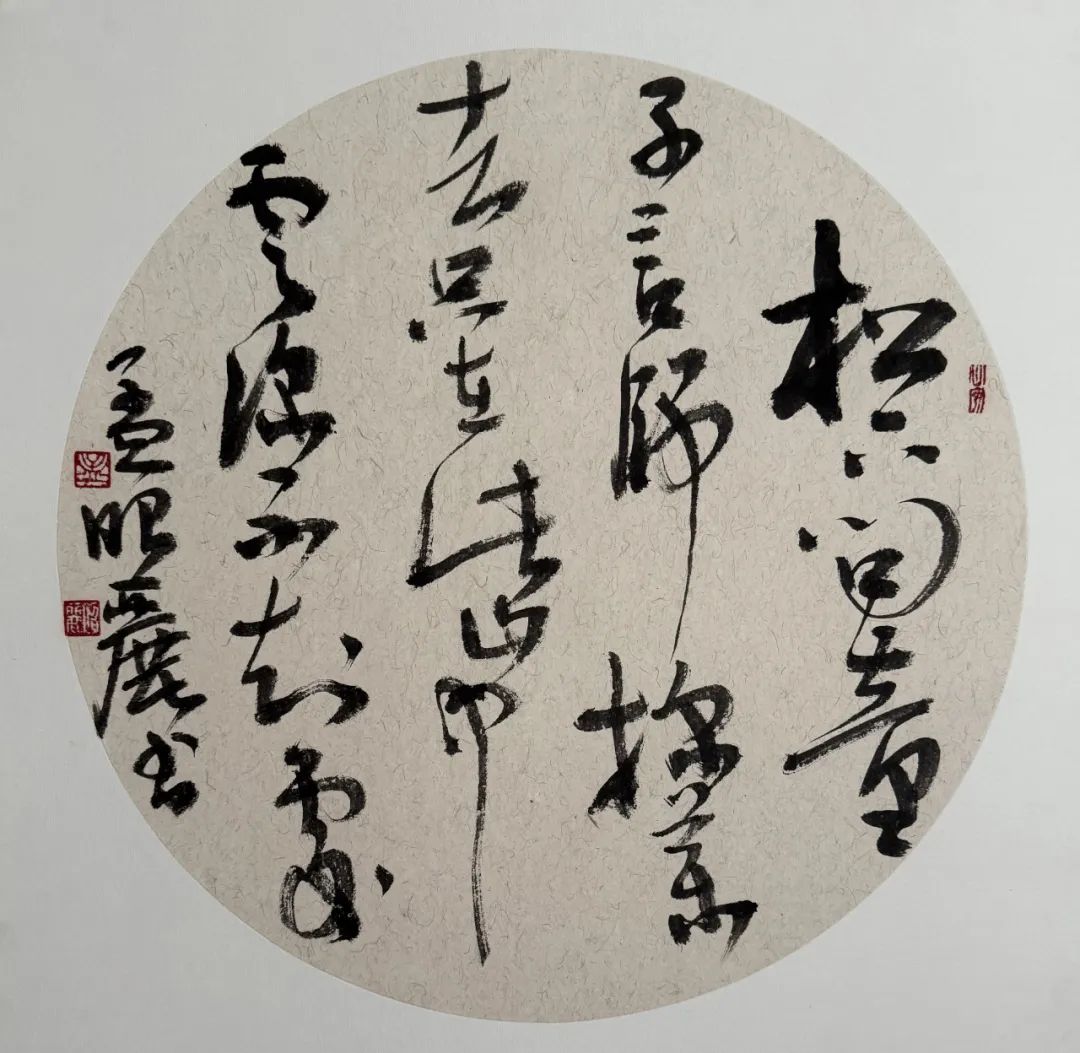 松下問童
子言師採藥
去只在此山中
雲深不知處
孟昭麗書